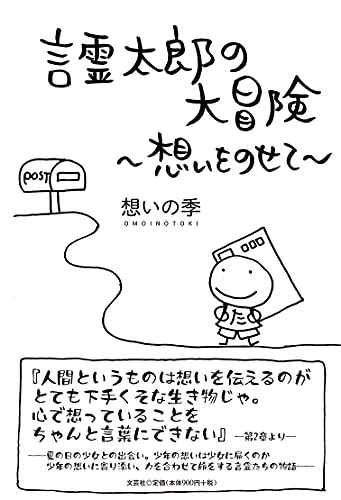 言霊太郎の
大冒険
～想いをのせて～
POST
想いの季
OMOINOTOKI
た
『人間というものは想いを伝えるのが
とても下手くそな生き物じゃ。
心で想っていることを
ちゃんと言葉にできない』 ―第2章より―
――夏の日の少女との出会い。少年の想いは少女に届くのか
少年の想いに寄り添い、力を合わせて旅をする言霊たちの物語――
文芸社◎定価（本体900円＋税）